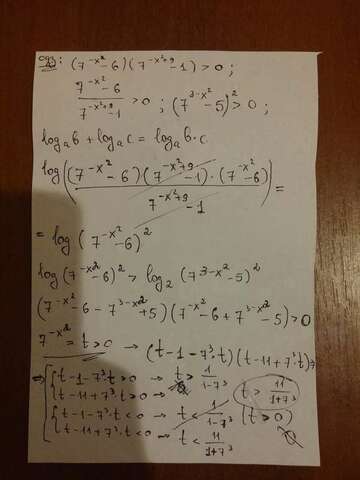 ОДЗ: (7^{-x²} - 6)(7^{-x²+9} - 1) > 0 ;
\frac{7^{-x²} - 6}{7^{-x²+9} - 1} > 0 ; (7^{3-x²} - 5)² > 0 ;
log_a b + log_a c = log_a b·c.
log((7^{-x²} - 6)(7^{-x²+9} - 1)·(7^{-x²} - 6) / 7^{-x²+9} - 1) =
= log (7^{-x²} - 6)²
log (7^{-x²} - 6)² > log_2 (7^{3-x²} - 5)²
(7^{-x²} - 6 - 7^{3-x²} + 5)(7^{-x²} - 6 + 7^{3-x²} - 5) > 0
7^{-x²} = t > 0 → (t - 1 - 7³·t)(t - 11 + 7³·t) >
⇒ t - 1 - 7³·t > 0 → t > \frac{1}{1-7³}
t - 11 + 7³·t > 0 → t > \frac{11}{1+7³}
t - 1 - 7³·t < 0 → t < \frac{1}{1-7³} (t > 0)
t - 11 + 7³·t < 0 → t < \frac{11}{1+7³}